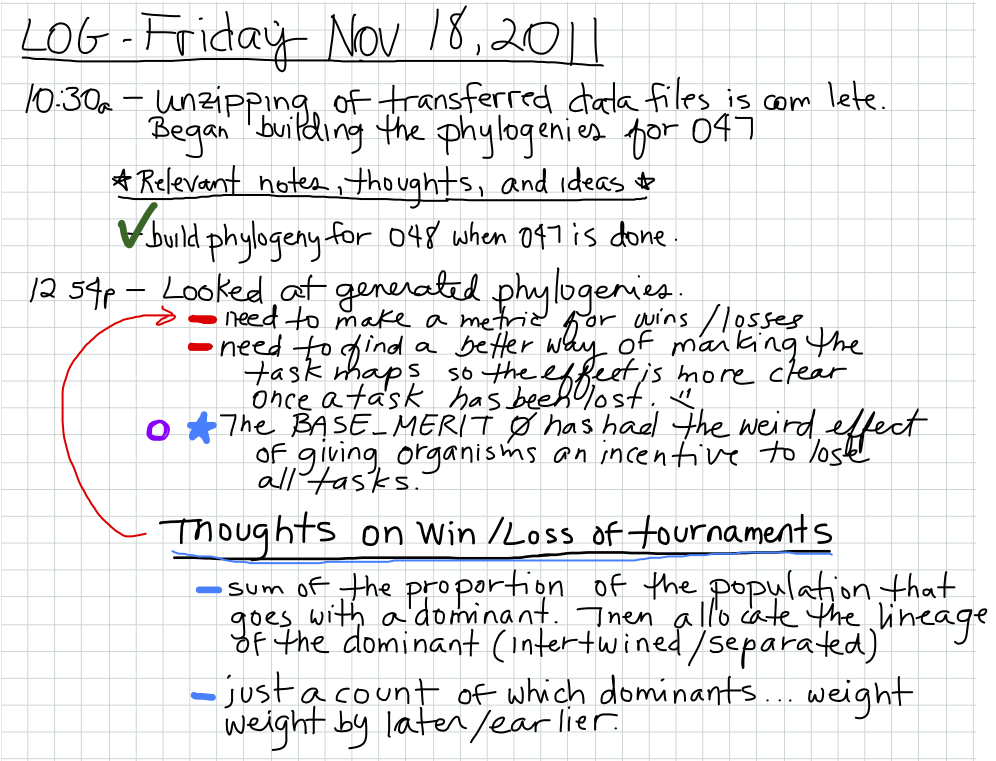 LOG - Friday Nov 18, 2011
10:30a - unzipping of transferred data files is com lete.
Began building the phylogenies for 047
* Relevant notes, thoughts, and ideas *
- build phylogeny for 048 when 047 is done.
12 54p - Looked at generated phylogenies.
- need to make a metric for wins/losses
- need to find a better way of marking the
task maps so the effect is more clear
once a task has been lost. =)
* The BASE_MERIT Ø has had the weird effect
of giving organisms an incentive to lose
all tasks.
Thoughts on Win/Loss of tournaments
- sum of the proportion of the population that
goes with a dominant. Then allocate the lineage
of the dominant (intertwined/separated)
- just a count of which dominants... weight
weight by later/earlier.